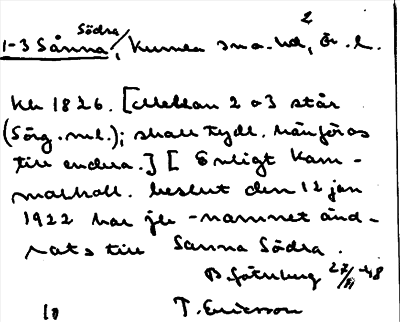 Södra/ 2
1-3 Sånna, Kumla sn o. hd, Ör. l.
Kb 1826. [Mellan 2 o 3 står
(Sörg. ); skall tydl. hänföras
till endera.] [Enligt Kam-
markoll. beslut den 12 jan
1922 har jb -namnet änd-
rats till Sanna Södra.
B. Götlieburg 27/ -48
10 T. Ericsson